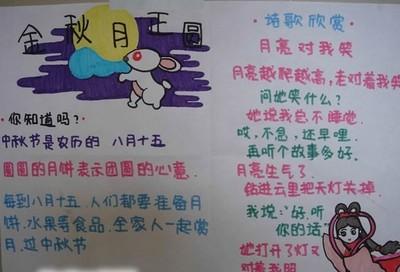 金秋月正圆
·你知道吗？·
中秋节是农历的 八月十五
圆圆的月饼表示团圆的心意.
每到八月十五.人们都要准备月
饼.水果等食品.全家人一起赏
月.过中秋节
诗歌欣赏
月亮对我笑
月亮越爬越高，老对着我笑
问她笑什么？
她说我总不睡觉.
哎，不急，还早哩.
再听个故事多好.
月亮生气了.
钻进云里把天灯关掉.
我说:"好.听
你的话.
她打开了灯又
对着我眀